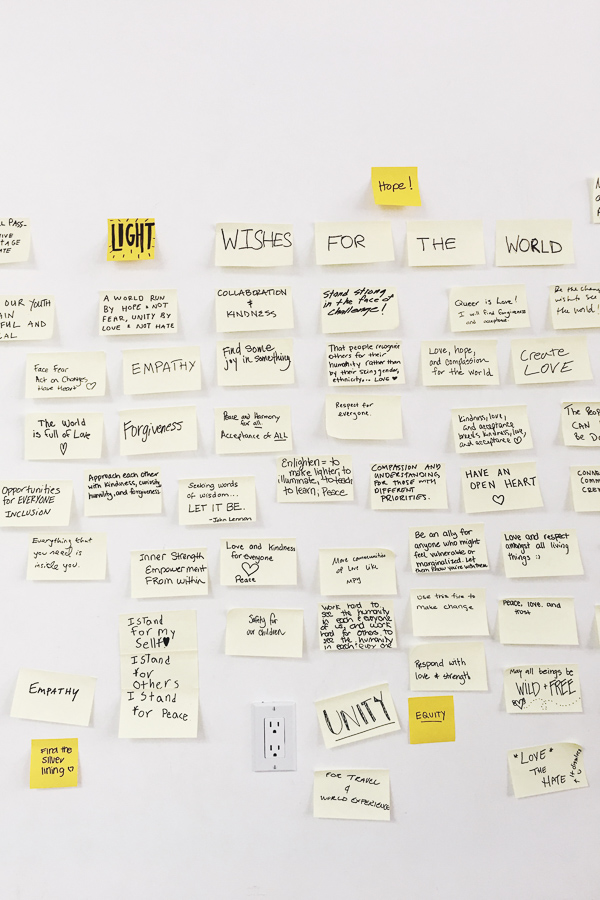 Hope!
LL PASS..
LIGHT
WISHES
FOR
THE
WORLD
OUR YOUTH
A WORLD RUN
BY HOPE & NOT
FEAR, UNITY BY
LOVE & NOT HATE
COLLABORATION
&
KINDNESS
Stand strong
in the face of
challenge!
Queer is Love!
I will find forgiveness
and acceptance.
Be the change
wish to see
the world!
face fear
Act on Changes
Have Heart ♡
EMPATHY
Find some
joy in something
That people recognize
others for their
humanity rather than
by their skin, gender,
ethnicity... LOVE ♥
Love, hope,
and compassion
for the world
Create
LOVE
The World
is full of Love
♡
Forgiveness
Peace and Harmony
for all.
Acceptance of ALL
Respect for
everyone.
Kindness, love,
and acceptance
breeds kindness, love,
and acceptance ♡
The
CAN
Be
Opportunities
for EVERYONE
INCLUSION
Approach each other
with kindness, curiosity,
humility, and forgiveness
Seeking words
of wisdom...
LET IT BE.
-John Lennon
Enlighten = to
make lighter, to
illuminate, to teach
to learn, Peace
COMPASSION AND
UNDERSTANDING
FOR THOSE WITH
DIFFERENT
PRIORITIES.
HAVE AN
OPEN HEART
♡
Everything that
you need is
inside you.
Inner Strength
Empowerment
From within
Love and Kindness
for everyone
♡
Peace
More communities
of Love like
MPY
Be an ally for
anyone who might
feel vulnerable or
marginalized. Let
them know you're with them
Love and respect
amongst all living
things :)
I Stand
for my
Self ♥
I Stand
for
Others
I Stand
for Peace
Safety for
our children
Work hard to
see the humanity
in each & everyone
of us, and work
hard for others to
see the humanity
in each & every one
Use true
to
make change
Peace, love, and
trust
Respond with
love & strength
EMPATHY
UNITY
EQUITY
May all beings be
WILD & FREE
Find the
silver
lining ♡
FOR TRAVEL
&
WORLD EXPERIENCE
"LOVE"
THE
HATE